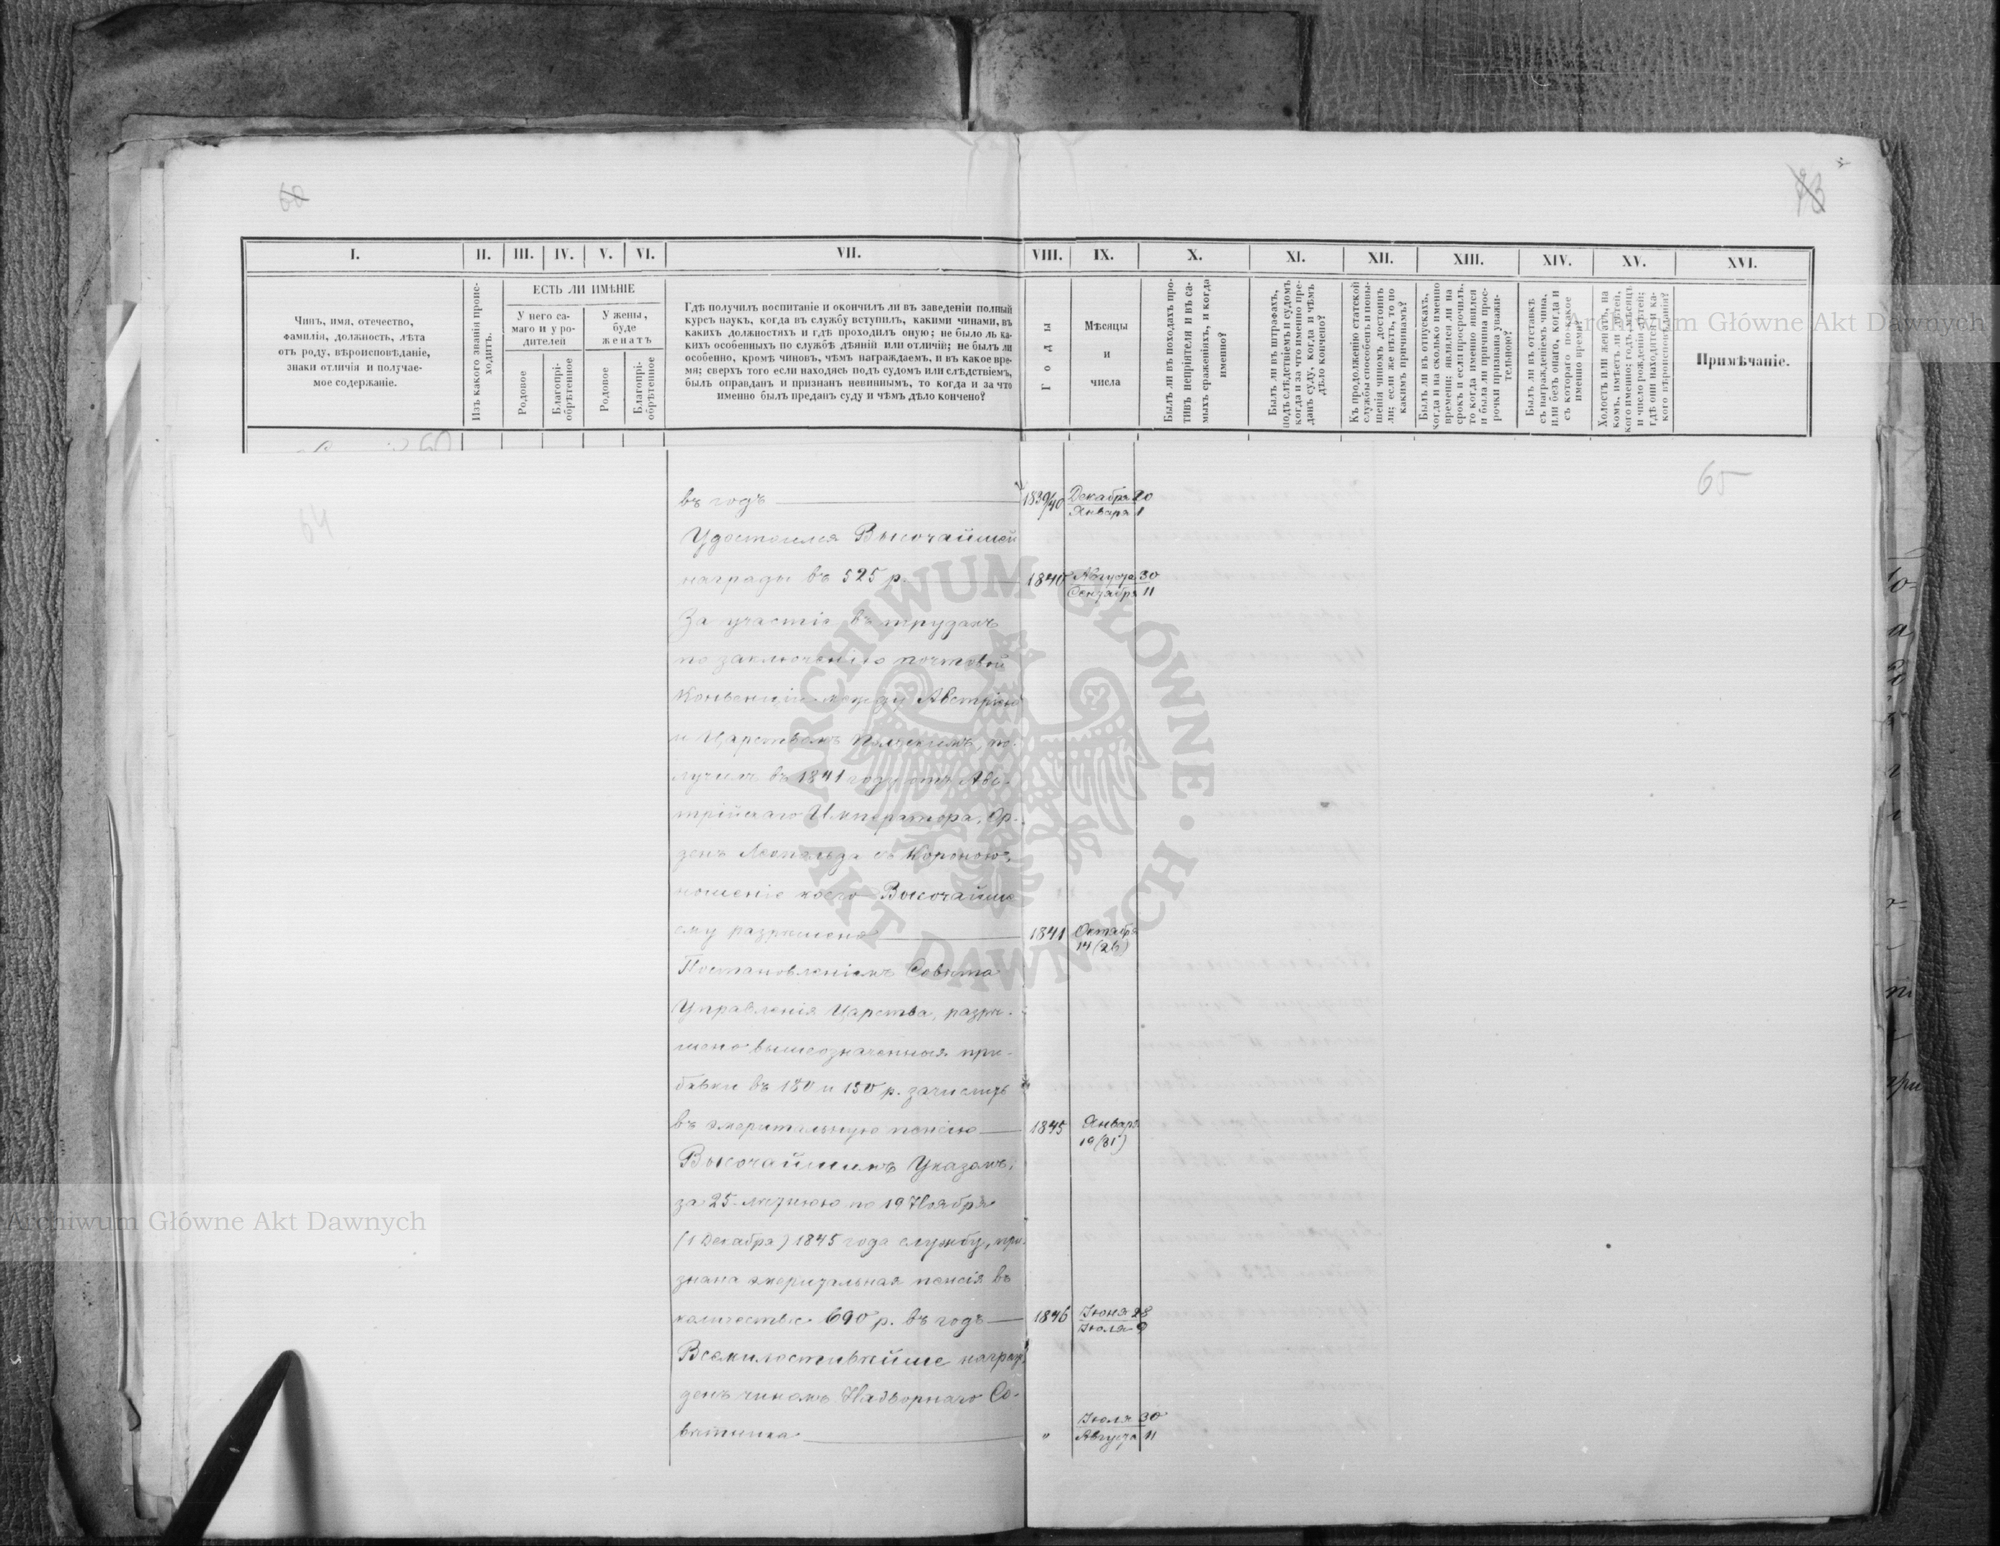 60
73
I.
II.
III.
IV.
V.
VI.
VII.
VIII.
IX.
X.
XI.
XII.
XIII.
XIV.
XV.
XVI.
Чинъ, имя, отечество,
фамилія, должность, лѣта
отъ роду, вѣроисповѣданіе,
знаки отличія и получае-
мое содержаніе.
Изъ какого званія проис-
ходитъ.
ЕСТЬ ЛИ ИМѢНІЕ
У него са-
маго и у ро-
дителей
У жены,
буде
женатъ
Родовое
Благопрі-
обрѣтенное
Родовое
Благопрі-
обрѣтенное
Гдѣ получилъ воспитаніе и окончилъ ли въ заведеніи полный
курсъ наукъ, когда въ службу вступилъ, какими чинами, въ
какихъ должностяхъ и гдѣ проходилъ оную; не было ль ка-
кихъ особенныхъ по службѣ дѣяній или отличій; не былъ ли
особенно, кромѣ чиновъ, чѣмъ награждаемъ, и въ какое вре-
мя; сверхъ того если находясь подъ судомъ или слѣдствіемъ,
былъ оправданъ и признанъ невиннымъ, то когда и за что
именно былъ преданъ суду и чѣмъ дѣло кончено?
Годы
Мѣсяцы
и
числа
Былъ ли въ походахъ про-
тивъ непріятеля и въ са-
мыхъ сраженіяхъ, и когда
именно?
Былъ ли въ штрафахъ,
подъ слѣдствіемъ и судомъ
когда и за что именно пре-
данъ суду, когда и чѣмъ
дѣло кончено?
Къ продолженію статской
службы способенъ и повы-
шенія чиномъ достоинъ
ли; если же нѣтъ, то по
какимъ причинамъ?
Былъ ли въ отпускахъ,
когда и на сколько именно
времени; явился ли на
срокъ и если просрочилъ,
то когда именно явился
и была ли причина прос-
рочки признана уважи-
тельною?
Былъ ли въ отставкѣ
съ награжденіемъ чина,
или безъ онаго, когда и
съ котораго по какое
именно время?
Холостъ или женатъ, на
комъ, имѣетъ ли дѣтей,
кого именно; годъ, мѣсяцъ
и число рожденія дѣтей;
гдѣ они находятся и ка-
кого вѣроисповѣданія?
Примѣчаніе.
64
65
въ годъ 1839/40 Декабря 20 Января 1
Удостоился Высочайшей
награды въ 525 р. 1840 Августа 30 Сентября 11
За участіе въ трудахъ
по заключенію почтовой
Конвенціи между Австріею
и Царствомъ Польскимъ, по-
лучилъ въ 1841 году отъ Авс-
трійскаго Императора, Ор-
денъ Леопольда съ Короною,
ношеніе коего Высочайше
ему разрѣшено 1841 Октября 14 (26)
Постановленіемъ Совѣта
Управленія Царства, разрѣ-
шено вышеозначенныя при-
бавки въ 180 и 150 р. зачислить
въ эмеритальную пенсію 1845 Января 19 (31)
Высочайшимъ Указомъ,
за 25-лѣтнюю по 19 Ноября
(1 Декабря) 1845 года службу, при-
знана эмеритальная пенсія въ
количествѣ 690 р. въ годъ 1846 Іюня 28 Іюля 9
Всемилостивѣйше награж-
денъ чиномъ Надворнаго Со-
вѣтника " Іюля 30 Августа 11
ARCHIWUM GŁÓWNE AKT DAWNYCH
Archiwum Główne Akt Dawnych
Archiwum Główne Akt Daw